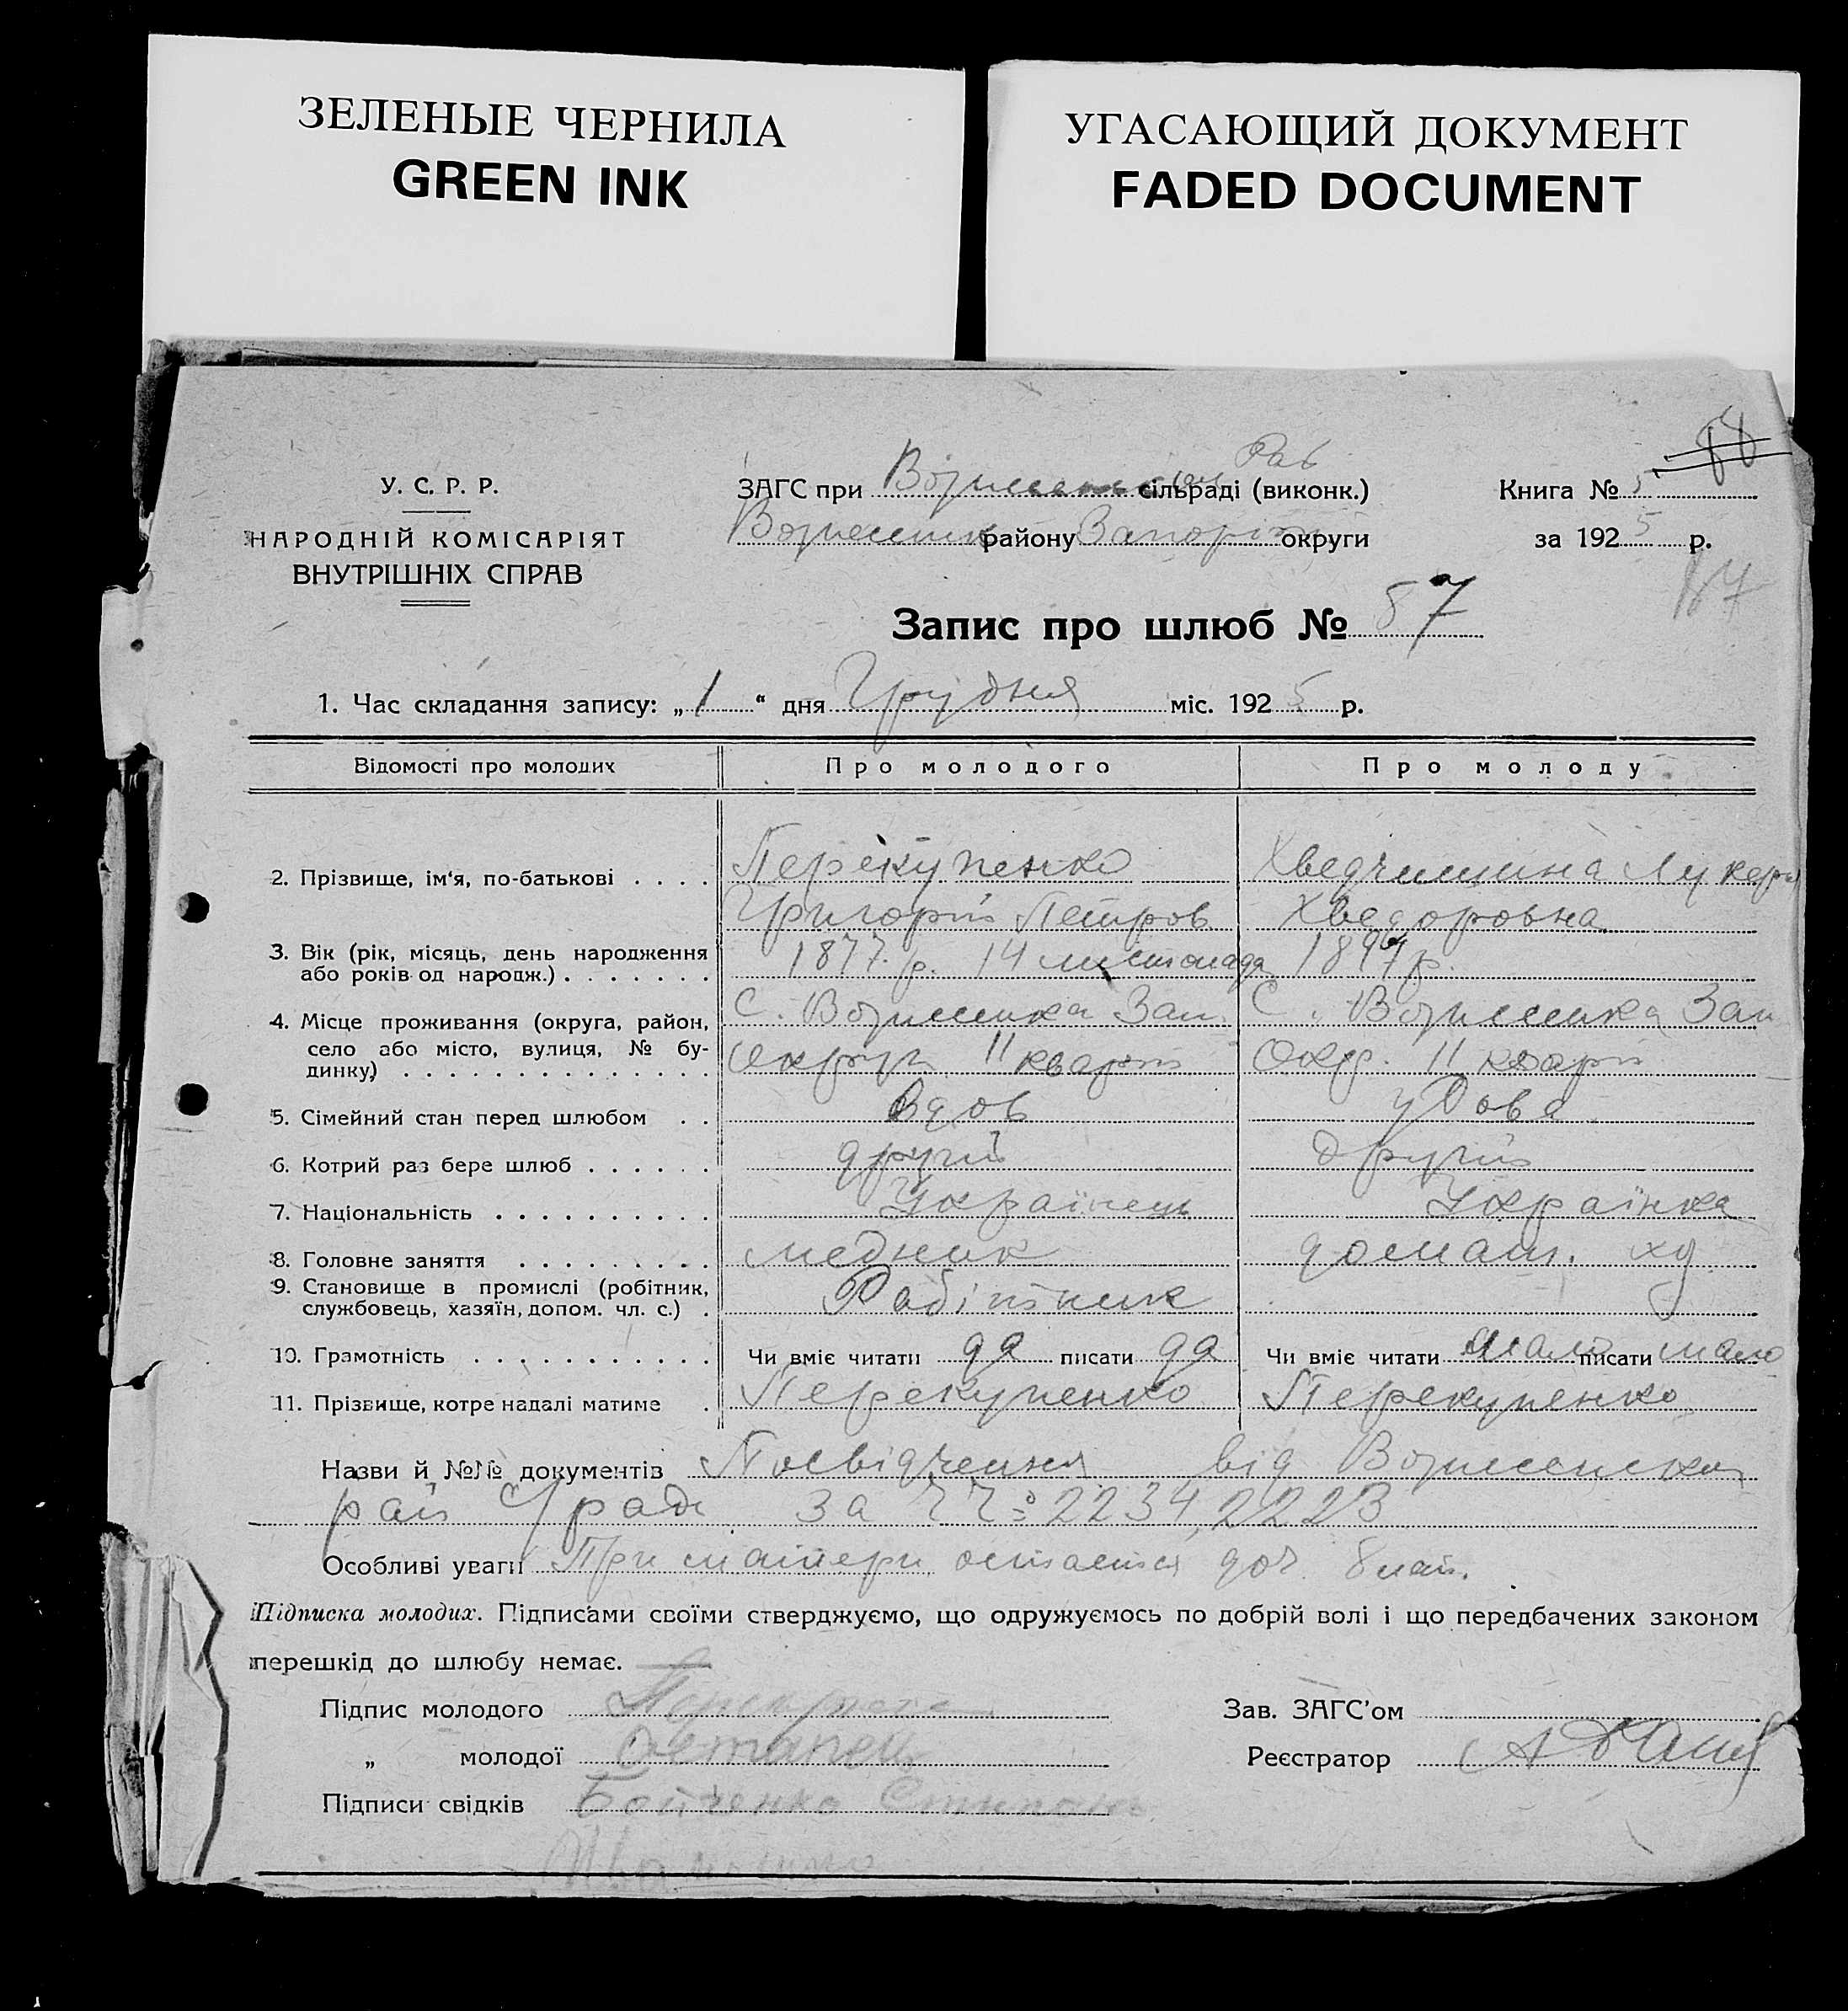 ЗЕЛЕНЫЕ ЧЕРНИЛА
GREEN INK
УГАСАЮЩИЙ ДОКУМЕНТ
FADED DOCUMENT
88
У. С. Р. Р.
НАРОДНІЙ КОМІСАРІЯТ
ВНУТРІШНІХ СПРАВ
ЗАГС при сільраді (виконк.)
району округи
Книга № 5
за 1925 р.
87
Запис про шлюб № 87
1. Час складання запису: „1“ дня Грудня міс. 1925 р.
Відомості про молодих Про молодого Про молоду
2. Прізвище, ім'я, по-батькові . . . . Перекупенко
Григорій Петров. Хведоровна
3. Вік (рік, місяць, день народження 1877 р. 14 листопада 1897 р.
або років од народж.) . . . . . . .
4. Місце проживання (округа, район, С. Вознесенка Зап. С. Вознесенка Зап
село або місто, вулиця, № бу- округи 11 кварт Окр. 11 кварт
динку) . . . . . . . . . . . . . .
5. Сімейний стан перед шлюбом . . Вдов удова
6. Котрий раз бере шлюб . . . . . . другий другий
7. Національність . . . . . . . . . . Українець Українка
8. Головне заняття . . . . . . . . . медник домаш. хд
9. Становище в промислі (робітник, Робітник
службовець, хазяїн, допом. чл. с.) .
10. Грамотність . . . . . . . . . . . Чи вміє читати да писати да Чи вміє читати мало писати мало
11. Прізвище, котре надалі матиме . Перекупенко Перекупенко
Назви й №№ документів Посвідчення від Вознесенской
рай С/ради за 2234, 2223
Особливі уваги При матери остается доч. 8 лет.
Підписка молодих. Підписами своїми стверджуємо, що одружуємось по добрій волі і що передбачених законом
перешкід до шлюбу немає.
Підпис молодого
Зав. ЗАГС'ом
„ молодої
Реєстратор
Підписи свідків Бойченко